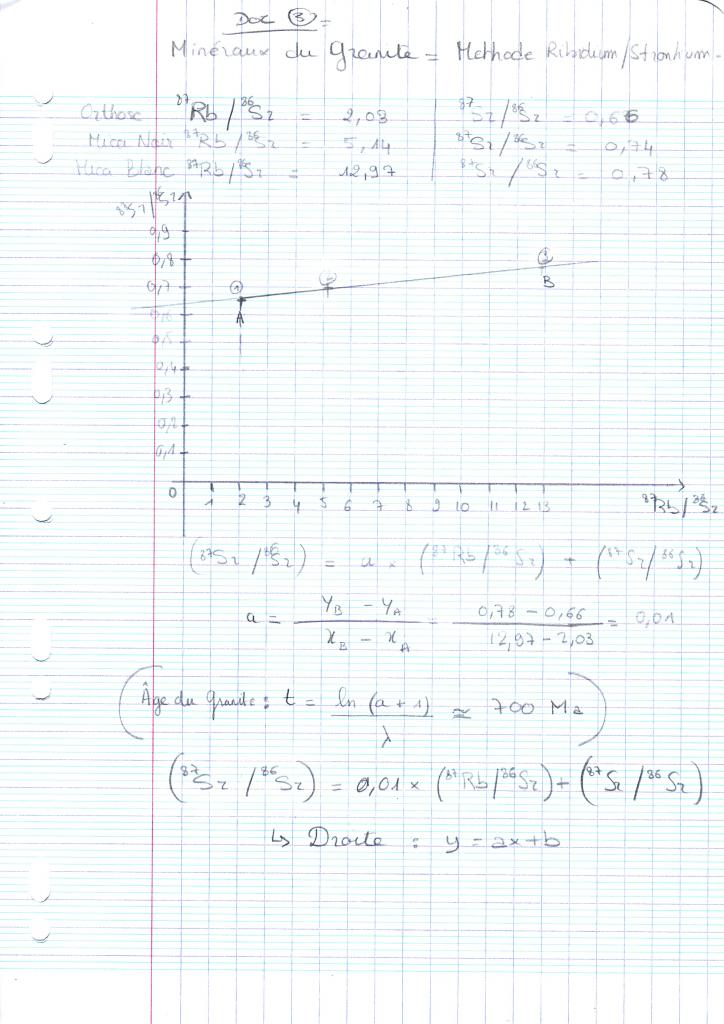 Doc ③ =
Minéraux du Granite = Methode Ribidium/Strontium -
Orthose ⁸⁷Rb/⁸⁶Sr = 2,03 | ⁸⁷Sr/⁸⁶Sr = 0,66
Mica Noir ⁸⁷Rb/⁸⁶Sr = 5,14 | ⁸⁷Sr/⁸⁶Sr = 0,74
Mica Blanc ⁸⁷Rb/⁸⁶Sr = 12,97 | ⁸⁷Sr/⁸⁶Sr = 0,78
⁸⁷Sr/⁸⁶Sr
0,9
0,8
0,7
0,6
0,5
0,4
0,3
0,2
0,1
① A
B
0 1 2 3 4 5 6 7 8 9 10 11 12 13
⁸⁷Rb/⁸⁶Sr
(⁸⁷Sr/⁸⁶Sr) = a × (⁸⁷Rb/⁸⁶Sr) + (⁸⁷Sr/⁸⁶Sr)
a = (yB - yA)/(xB - xA) = (0,78 - 0,66)/(12,97 - 2,03) = 0,01
(Âge du Granite : t = ln (a+1)/λ ≃ 700 Ma)
(⁸⁷Sr/⁸⁶Sr) = 0,01 × (⁸⁷Rb/⁸⁶Sr) + (⁸⁷Sr/⁸⁶Sr)
↳ Droite : y = ax+b